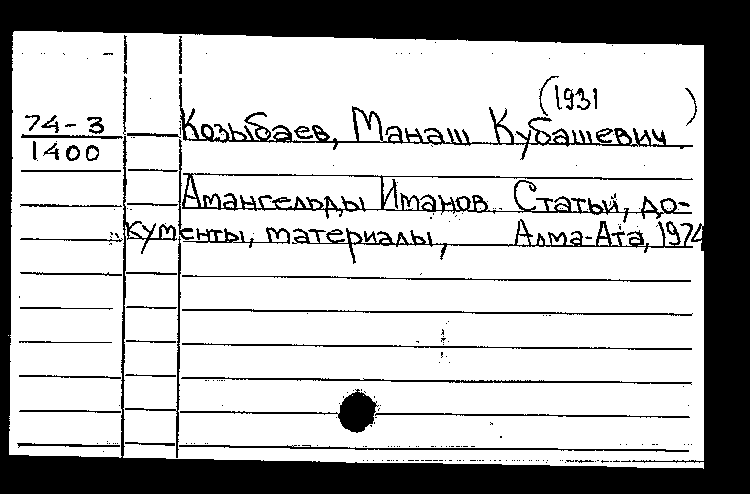 (1931 )
74-3 Козыбаев, Манаш Кубашевич.
1400
Амангельды Иманов. Статьи, до-
кументы, материалы, Алма-Ата, 1974